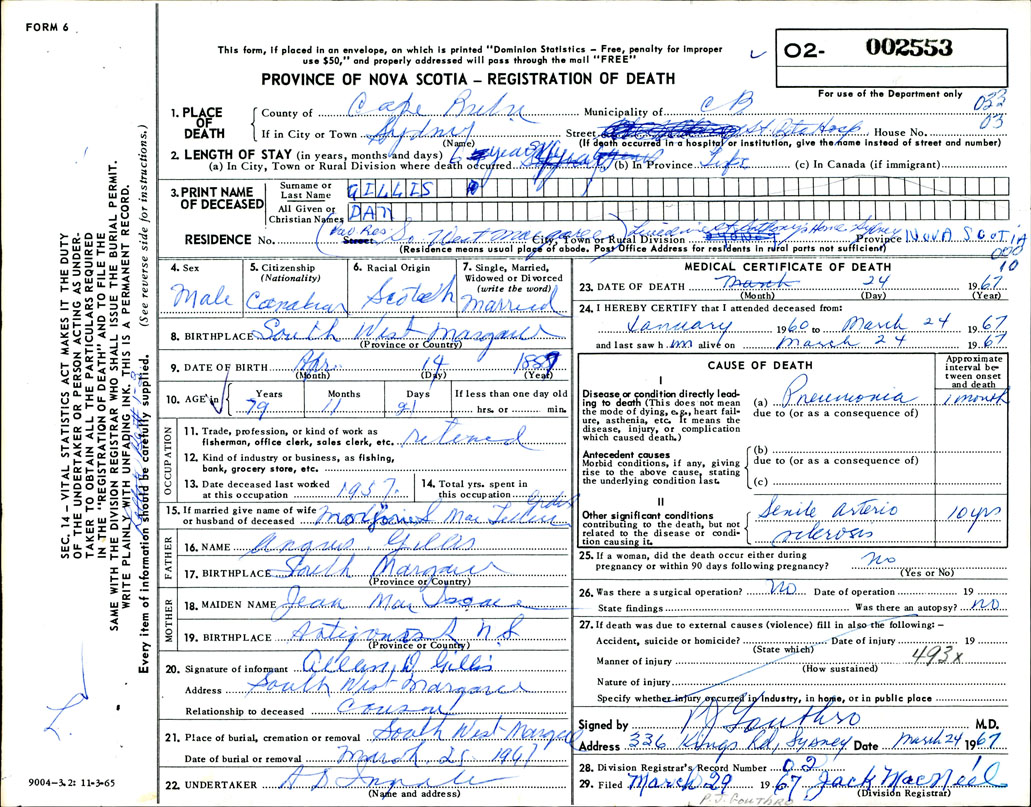 FORM 6
This form, if placed in an envelope, on which is printed "Dominion Statistics – Free, penalty for improper
use $50," and properly addressed will pass through the mail "FREE"
PROVINCE OF NOVA SCOTIA – REGISTRATION OF DEATH
O2- 002553
For use of the Department only
022
03
1. PLACE OF DEATH
County of Cape Breton Municipality of CB
If in City or Town Sydney Street St. Rita Hosp House No.
(Name) (If death occurred in a hospital or institution, give the name instead of street and number)
2. LENGTH OF STAY (in years, months and days)
(a) In City, Town or Rural Division where death occurred (b) In Province Life (c) In Canada (if immigrant)
3. PRINT NAME OF DECEASED
Surname or Last Name GILLIS
All Given or Christian Names DAN
RESIDENCE No. Street S. West Margaree City, Town or Rural Division St Anthony's Home Sydney Province NOVA SCOTIA
(Residence means usual place of abode. Post Office Address for residents in rural parts not sufficient)
10
4. Sex Male
5. Citizenship (Nationality) Canadian
6. Racial Origin Scotch
7. Single, Married, Widowed or Divorced (write the word) Married
8. BIRTHPLACE South West Margaree
(Province or Country)
9. DATE OF BIRTH Apr. 14 1887
(Month) (Day) (Year)
10. AGE in Years 79 Months 11 Days If less than one day old hrs. or min.
OCCUPATION
11. Trade, profession, or kind of work as fisherman, office clerk, sales clerk, etc. retired
12. Kind of industry or business, as fishing, bank, grocery store, etc.
13. Date deceased last worked at this occupation 1957.
14. Total yrs. spent in this occupation
15. If married give name of wife or husband of deceased
FATHER
16. NAME Angus Gillis
17. BIRTHPLACE South Margaree
(Province or Country)
MOTHER
18. MAIDEN NAME Jean MacIsaac
19. BIRTHPLACE Antigonish N S
(Province or Country)
20. Signature of informant Allan D Gillis
Address South West Margaree
Relationship to deceased Cousin
21. Place of burial, cremation or removal South West Margaree
Date of burial or removal March 25 1967
22. UNDERTAKER
(Name and address)
MEDICAL CERTIFICATE OF DEATH
23. DATE OF DEATH March 24 1967
(Month) (Day) (Year)
24. I HEREBY CERTIFY that I attended deceased from:
January 1960 to March 24 1967
and last saw him alive on March 24 1967
CAUSE OF DEATH
Approximate interval between onset and death
I
Disease or condition directly leading to death (This does not mean the mode of dying, e.g., heart failure, asthenia, etc. It means the disease, injury, or complication which caused death.)
(a) Pneumonia 1 month
due to (or as a consequence of)
Antecedent causes
Morbid conditions, if any, giving rise to the above cause, stating the underlying condition last.
(b)
due to (or as a consequence of)
(c)
II
Other significant conditions contributing to the death, but not related to the disease or condition causing it.
Senile arterio 10 yrs
sclerosis
25. If a woman, did the death occur either during pregnancy or within 90 days following pregnancy? no
(Yes or No)
26. Was there a surgical operation? No Date of operation 19
State findings Was there an autopsy? No
27. If death was due to external causes (violence) fill in also the following: –
Accident, suicide or homicide? Date of injury 19
(State which)
Manner of injury 493x
(How sustained)
Nature of injury
Specify whether injury occurred in industry, in home, or in public place
Signed by PJ Gouthro M.D.
Address 336 Kings Rd, Sydney Date March 24 1967
28. Division Registrar's Record Number 02
29. Filed March 29 1967 Jack MacNeil
(Division Registrar)
P.J. GOUTHRO
SEC. 14 – VITAL STATISTICS ACT MAKES IT THE DUTY
OF THE UNDERTAKER OR PERSON ACTING AS UNDERTAKER TO OBTAIN ALL THE PARTICULARS REQUIRED
IN THE "REGISTRATION OF DEATH" AND TO FILE THE
SAME WITH THE DIVISION REGISTRAR WHO SHALL ISSUE THE BURIAL PERMIT.
WRITE PLAINLY WITH UNFADING INK. THIS IS A PERMANENT RECORD.
Every item of information should be carefully supplied. (See reverse side for instructions.)
9004–3.2: 11-3-65